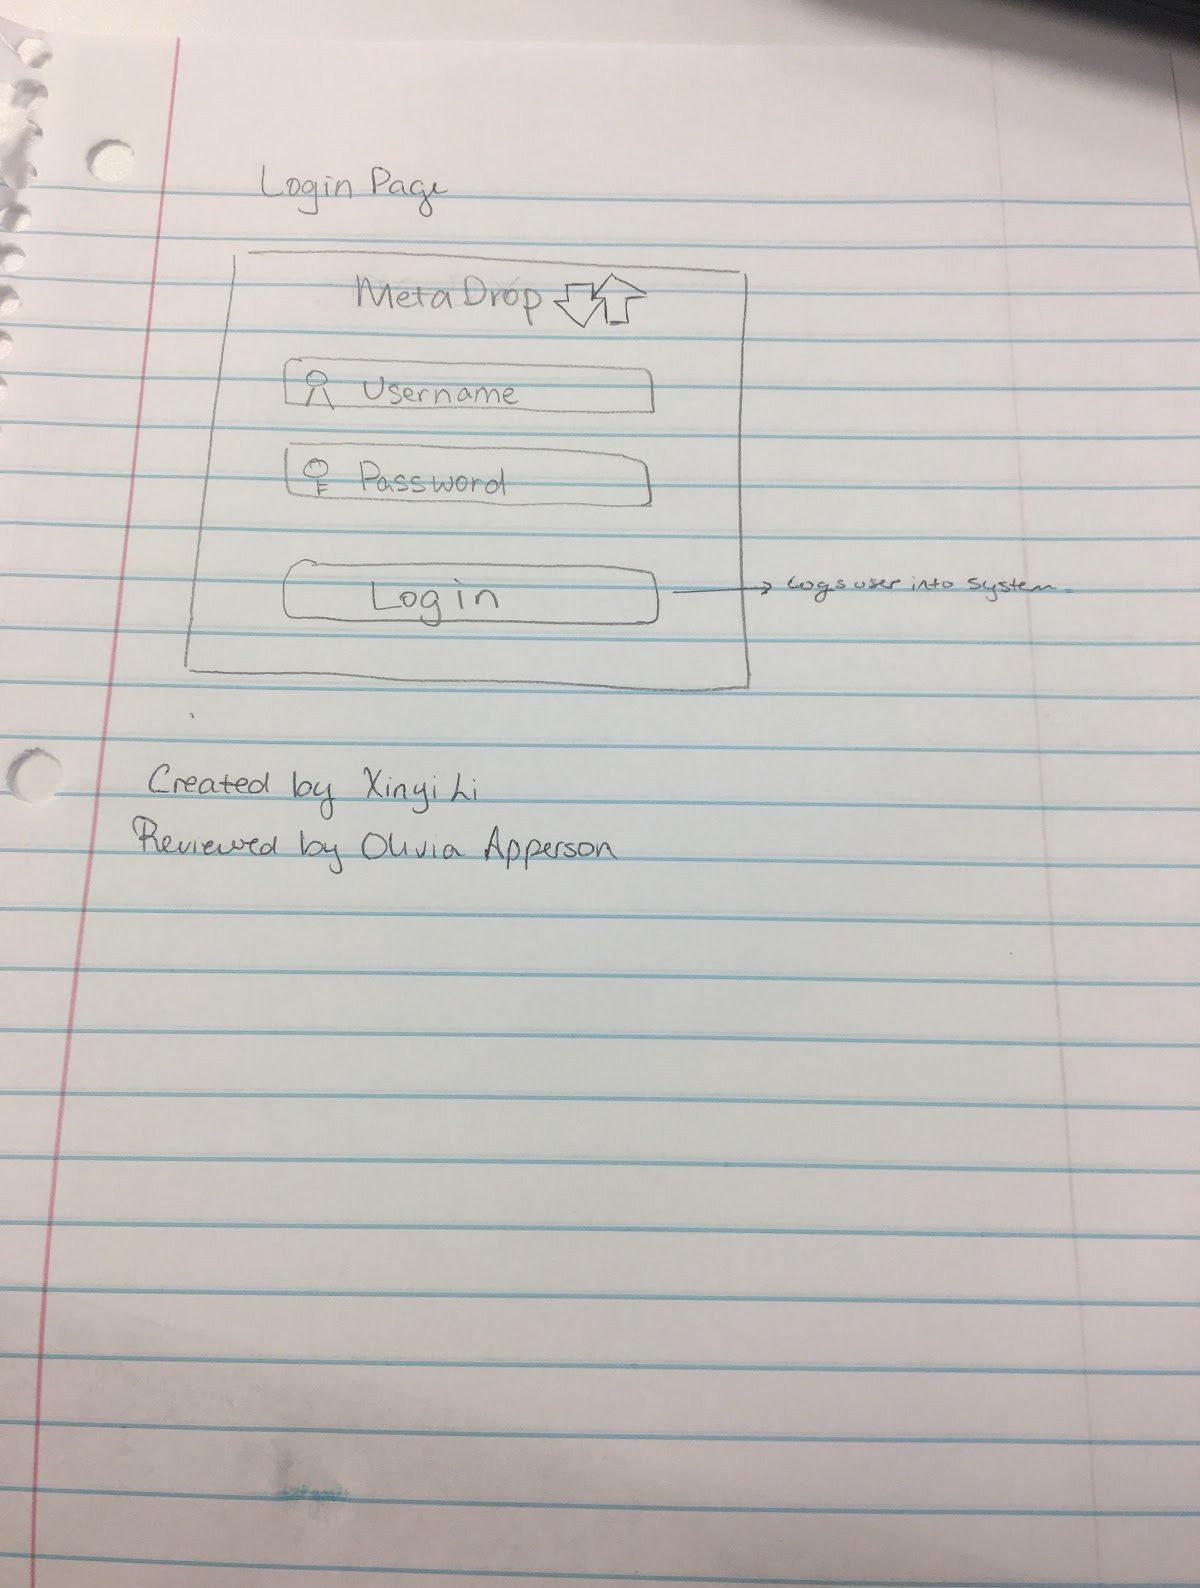 Login Page
MetaDrop
Username
Password
Login
Logs user into system.
Created by Xinyi Li
Reviewed by Olivia Apperson